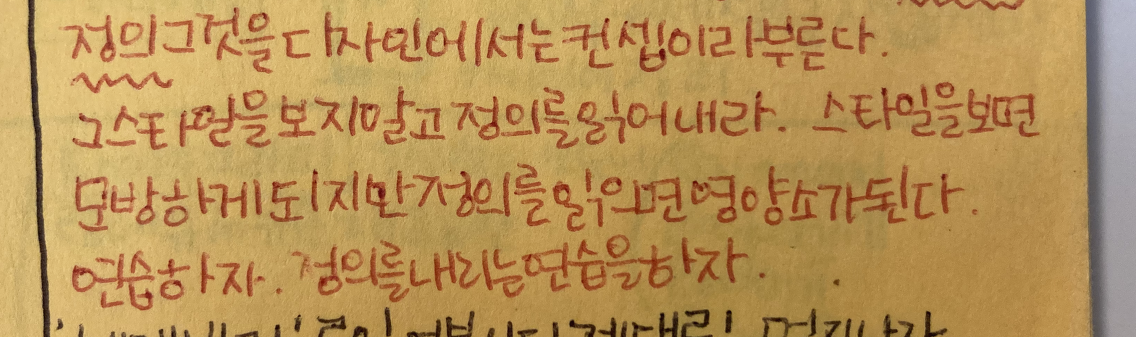 정의 그것을 디자인에서는 컨셉이라 부른다.
그 스타일을 보지말고 정의를 읽어내라. 스타일을 보면
모방하게 되지만 정의를 읽으면 영양소가 된다.
연습하자. 정의를 내리는 연습을 하자.